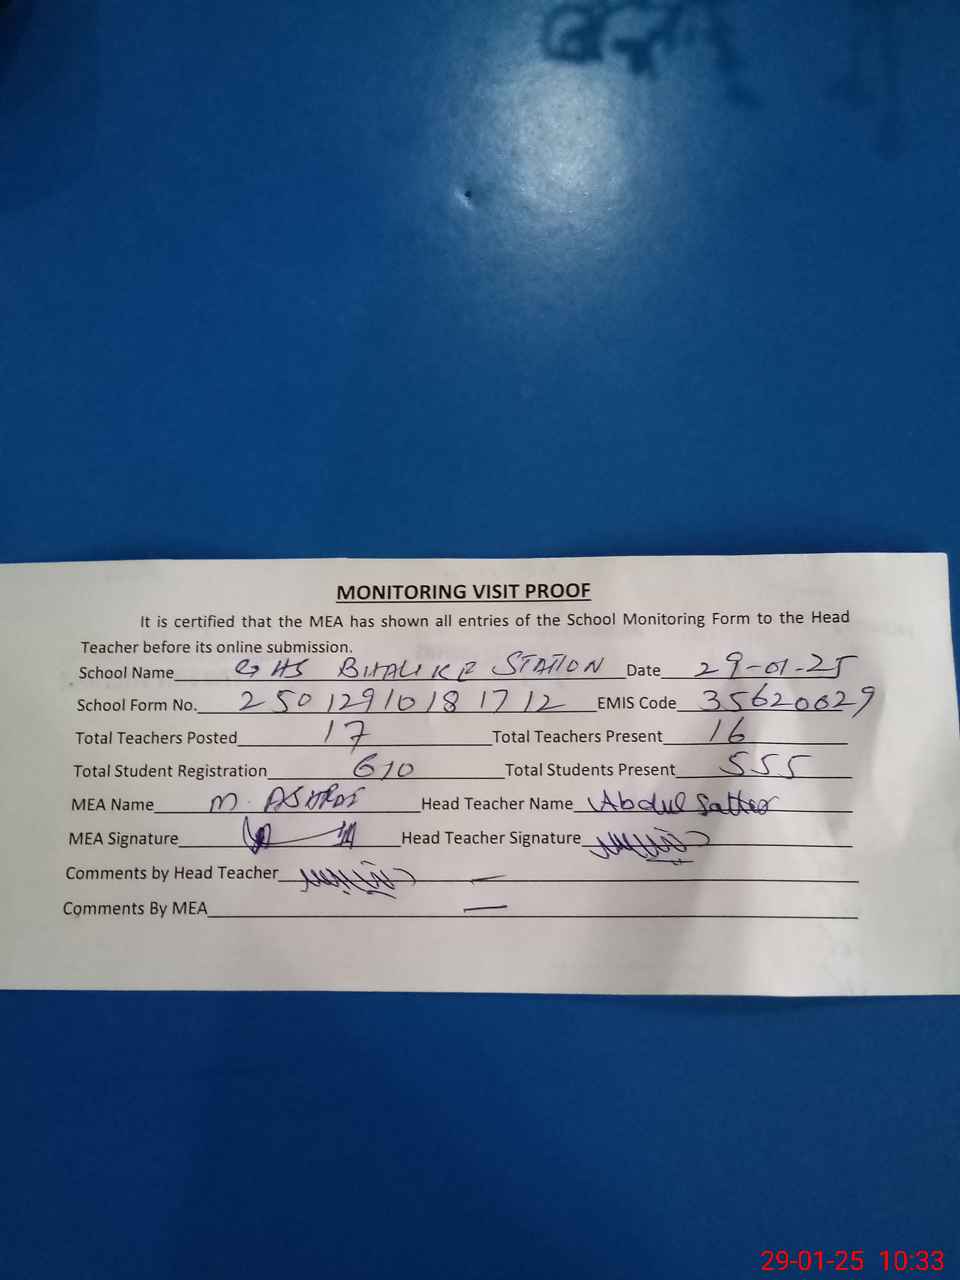 MONITORING VISIT PROOF
It is certified that the MEA has shown all entries of the School Monitoring Form to the Head
Teacher before its online submission.
School Name GHS BHALIKE STATION Date 29-01-25
School Form No. 25012910181712 EMIS Code 35620029
Total Teachers Posted 17 Total Teachers Present 16
Total Student Registration 610 Total Students Present 555
MEA Name M. ASHRAF Head Teacher Name Abdul Sattar
MEA Signature Head Teacher Signature
Comments by Head Teacher —
Comments By MEA —
29-01-25 10:33